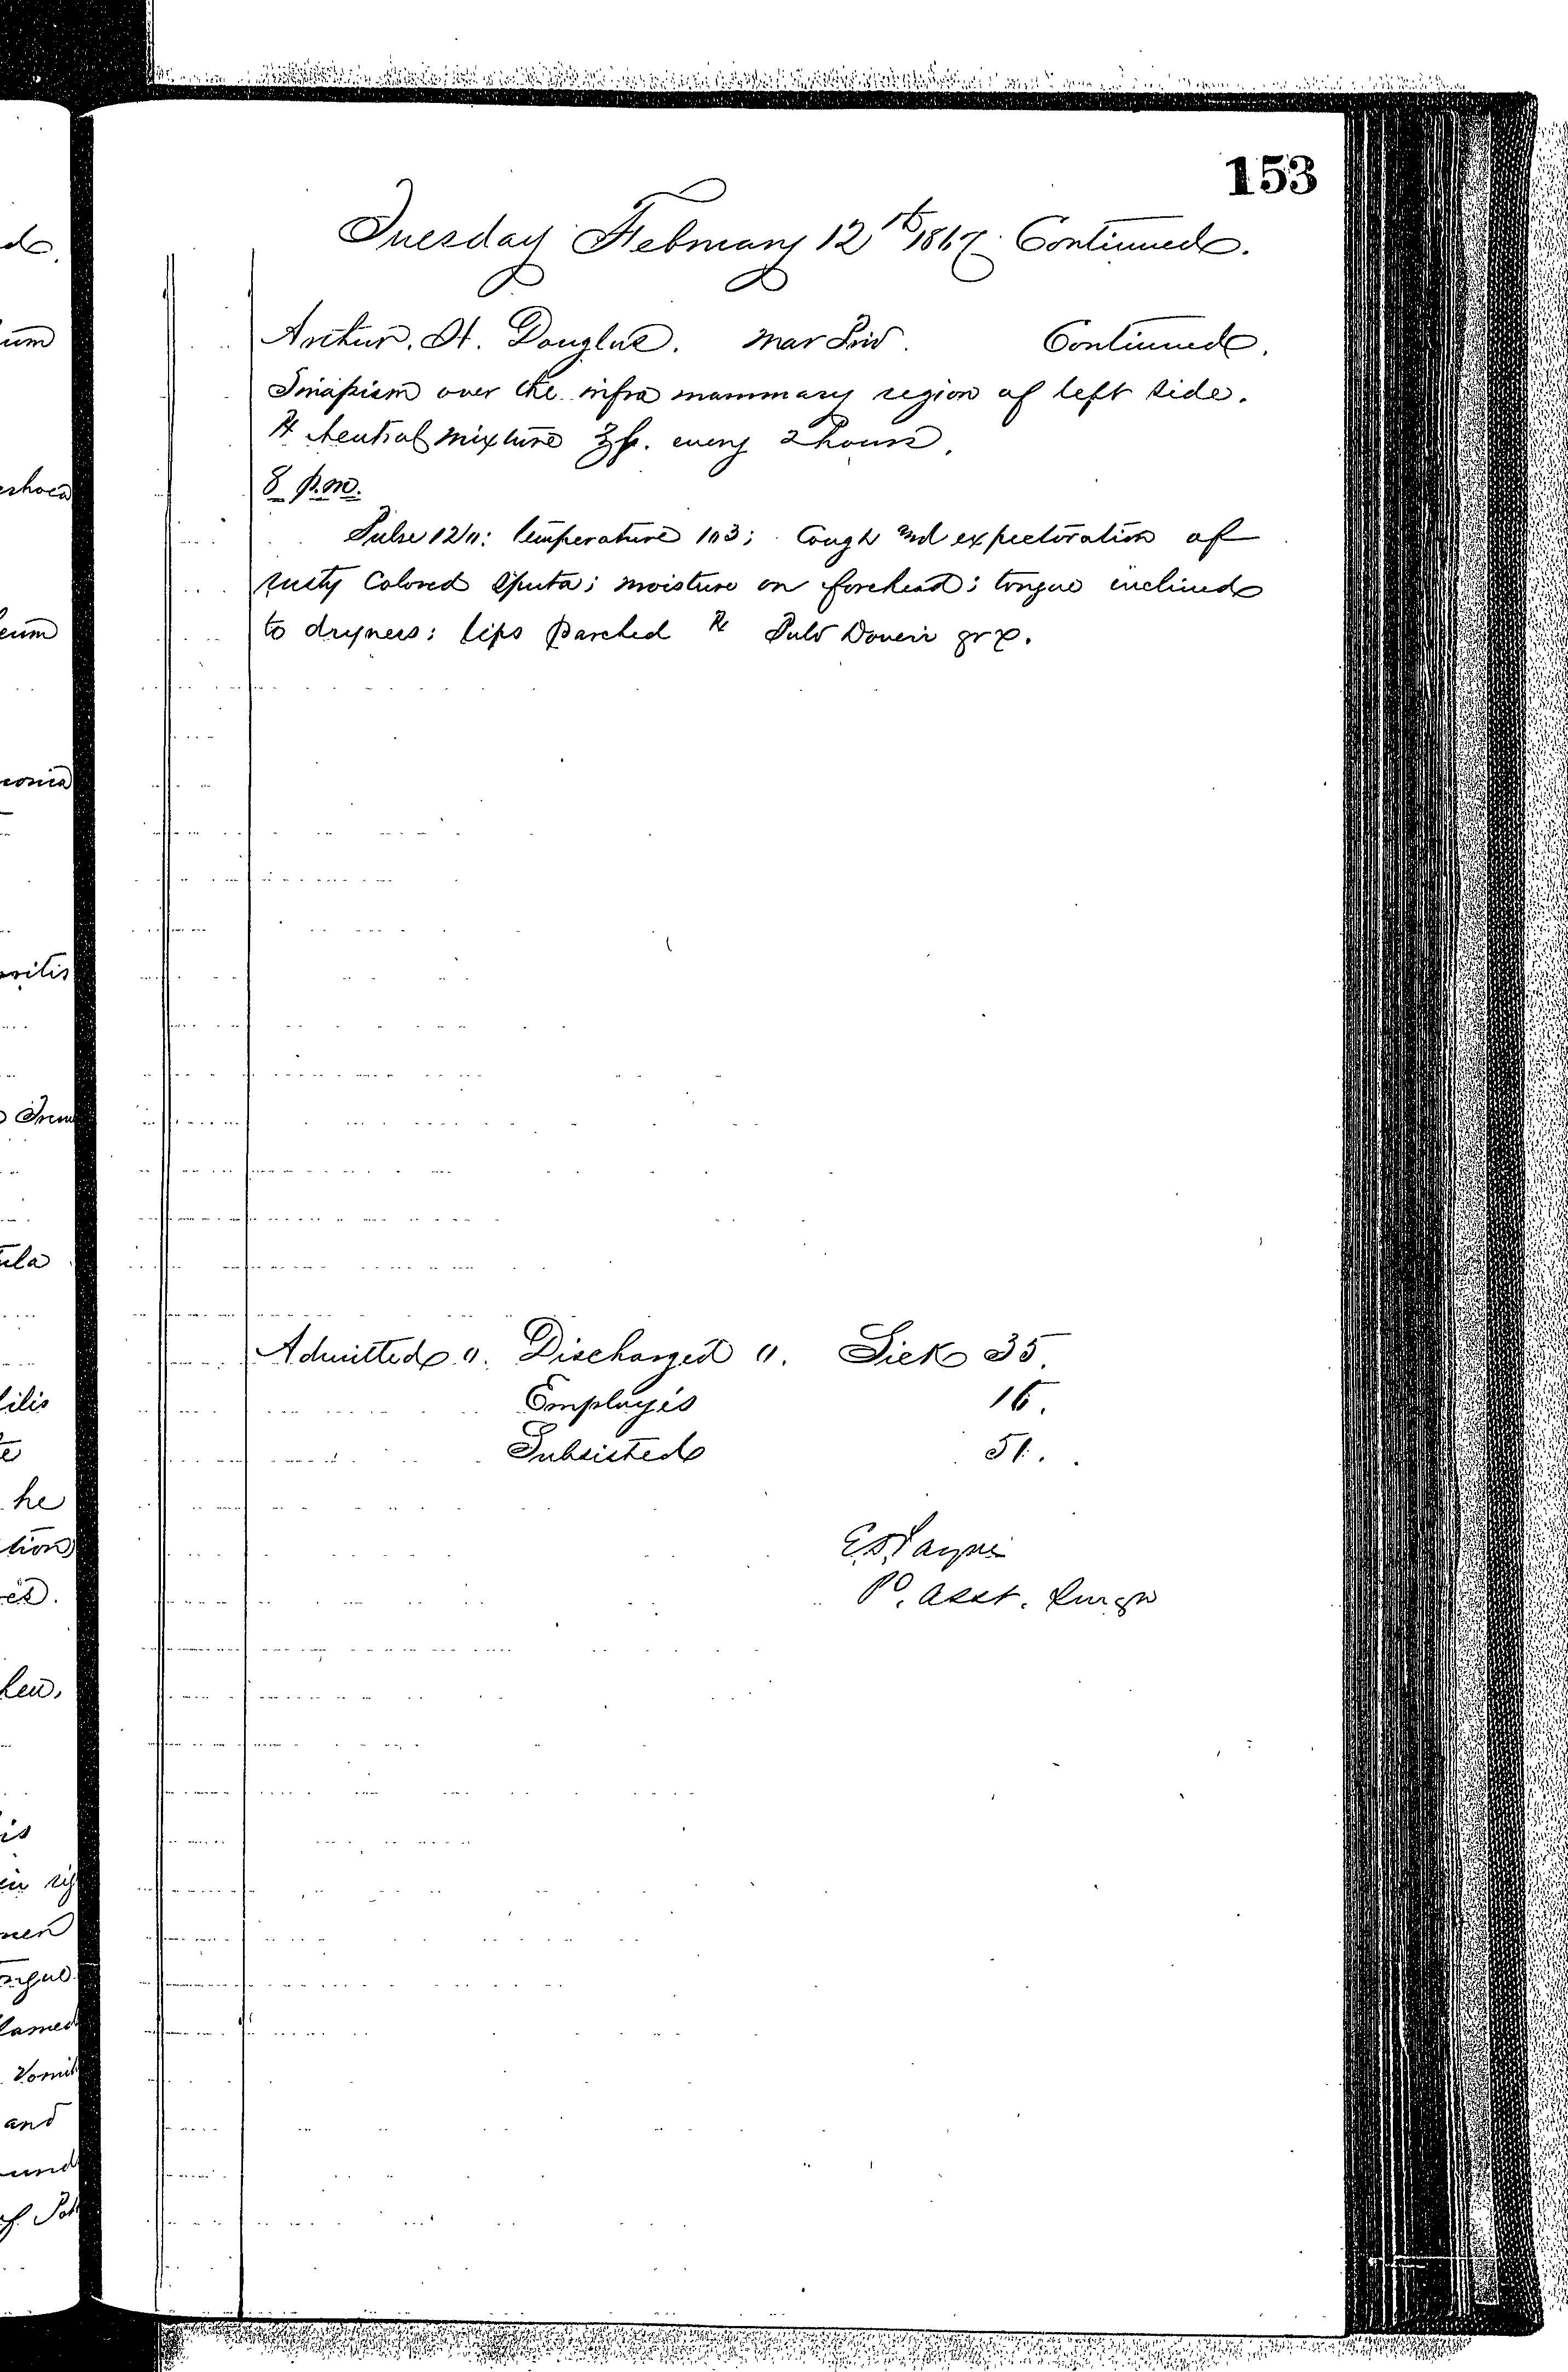 153
Tuesday February 12th 1867. Continued.
Arthur. H. Douglas. Mar Div. Continued.
Sinapism over the infra mammary region of left side.
℞ Neutral mixture ℥ss. every 2 hours.
8 p.m.
Pulse 120: temperature 103; Cough and expectoration of
rusty Colored Sputa; moisture on forehead; tongue inclined
to dryness: lips parched ℞ Pulv Doveri gr x.
Admitted 0. Discharged 0. Sick 35.
Employés 16.
Subsisted 51.
P. Asst. Surgn